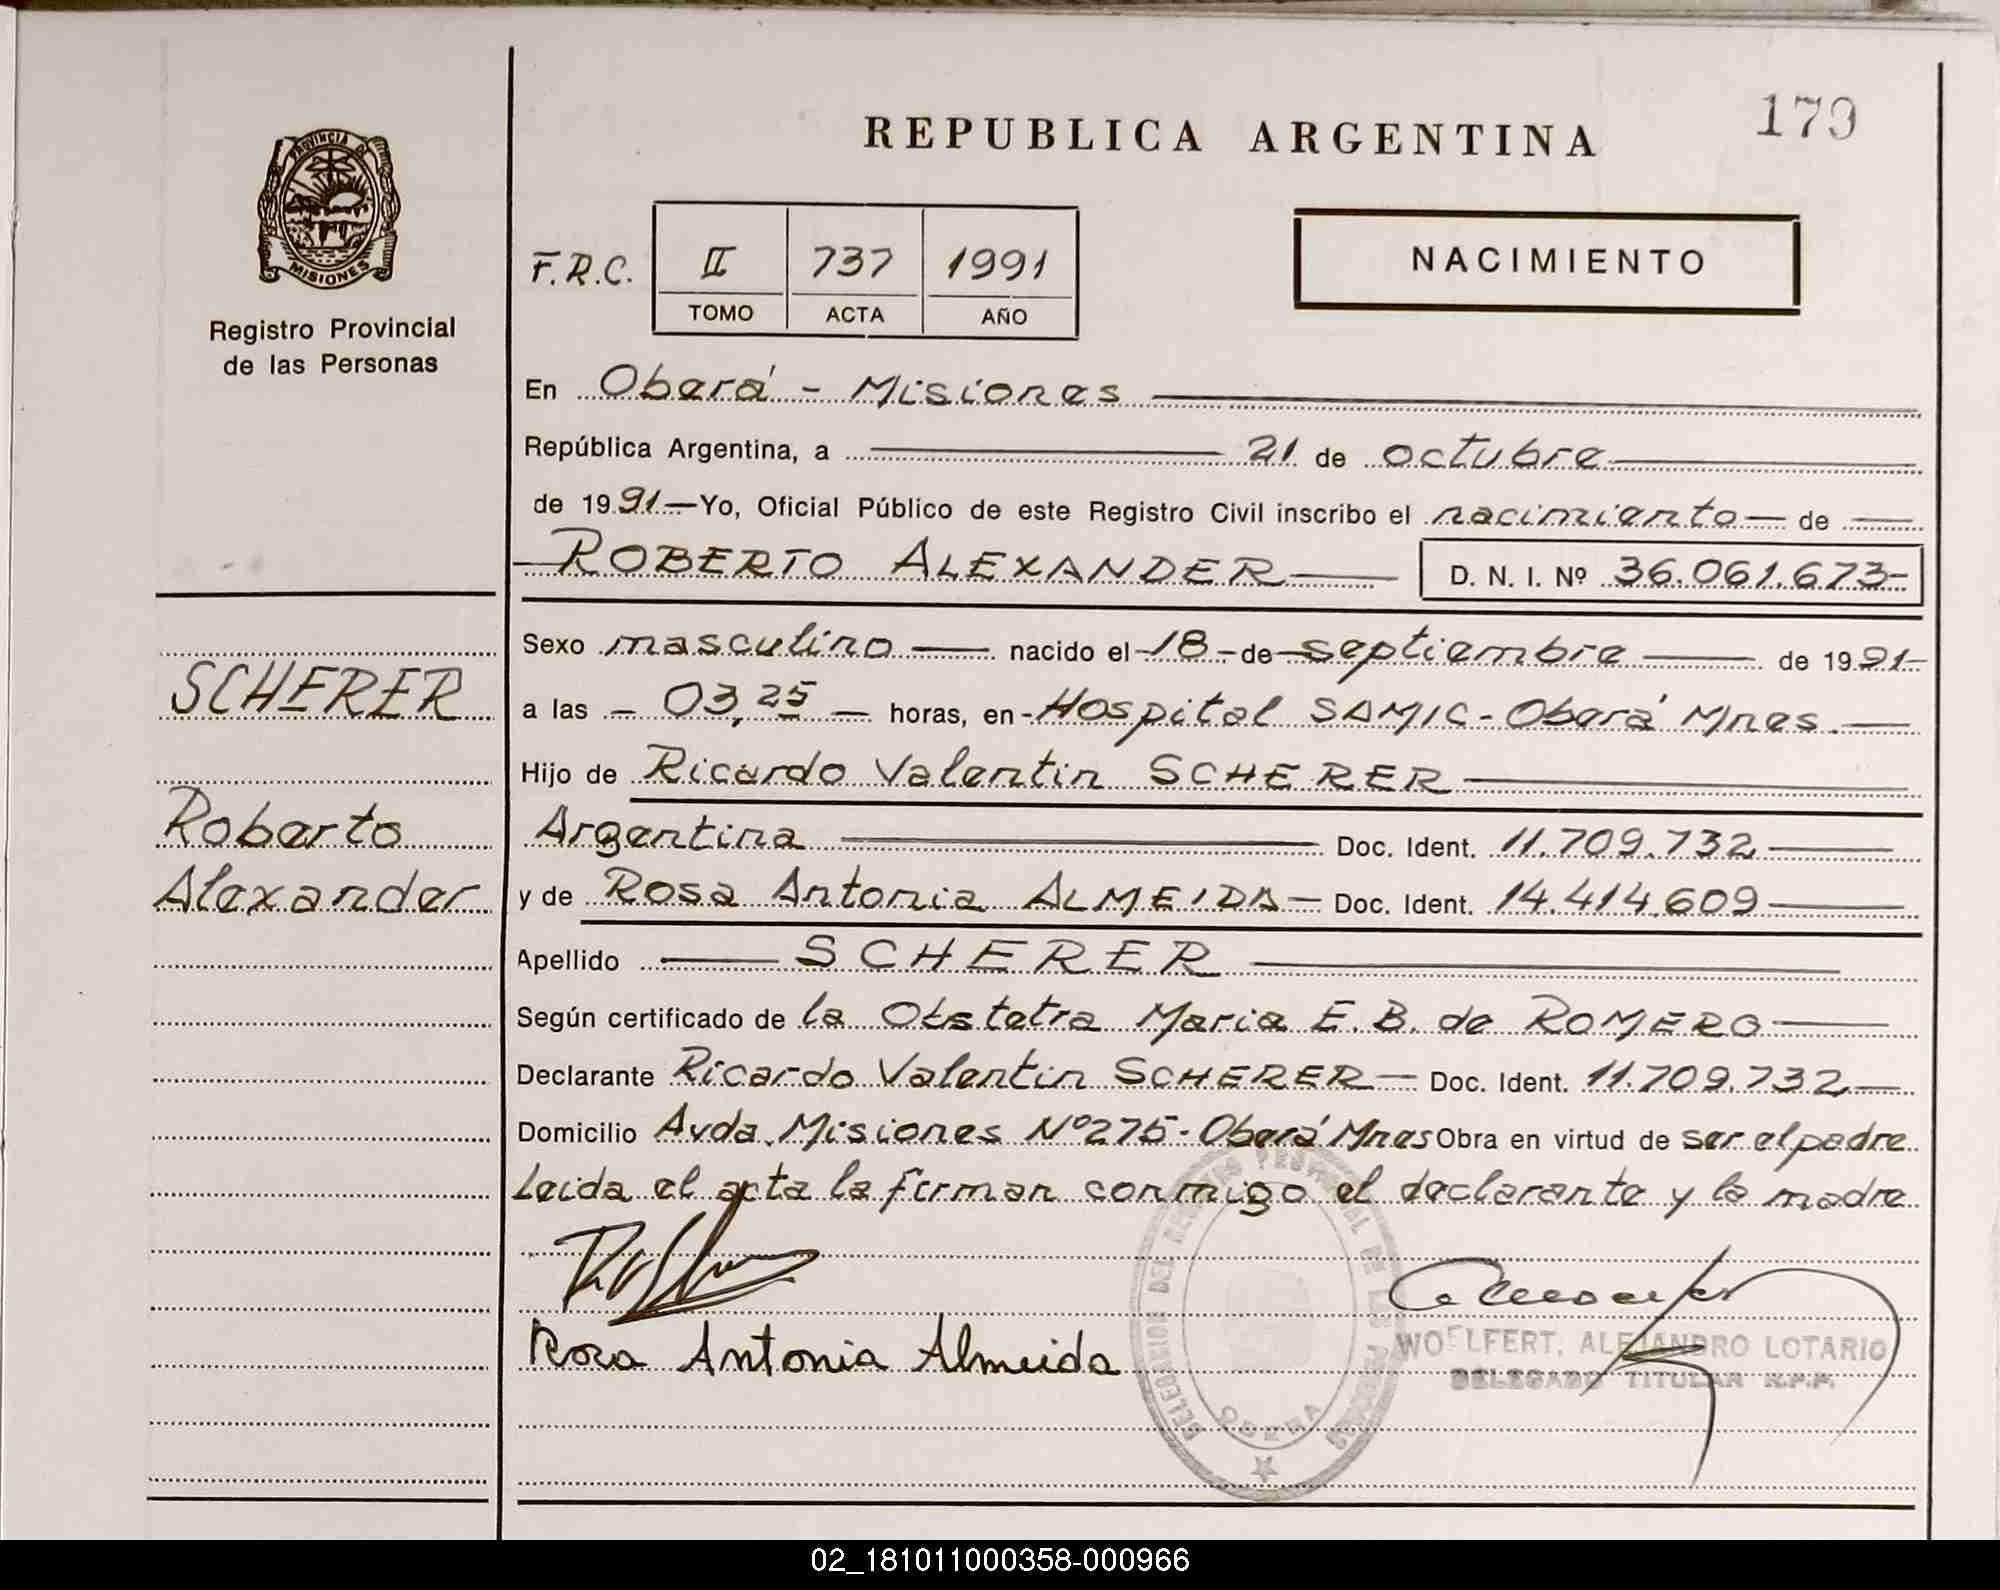 PROVINCIA DE
MISIONES
Registro Provincial
de las Personas
SCHERER
Roberto
Alexander
179
REPUBLICA ARGENTINA
F.R.C.
II 737 1991
TOMO ACTA AÑO
NACIMIENTO
En Oberá - Misiones
República Argentina, a 21 de octubre
de 1991.— Yo, Oficial Público de este Registro Civil inscribo el nacimiento — de —
ROBERTO ALEXANDER — D. N. I. Nº 36.061.673-
Sexo masculino — nacido el - 18 - de - septiembre — de 1991-
a las - 03,25 - horas, en - Hospital SAMIC - Oberá Mnes. —
Hijo de Ricardo Valentin SCHERER
Argentina — Doc. Ident. 11.709.732 —
y de Rosa Antonia ALMEIDA — Doc. Ident. 14.414.609 —
Apellido — SCHERER —
Según certificado de la Obstetra Maria E. B. de ROMERO —
Declarante Ricardo Valentin SCHERER — Doc. Ident. 11.709.732 —
Domicilio Avda. Misiones Nº 275 - Oberá Mnes Obra en virtud de ser el padre
Leida el acta la firman conmigo el declarante y la madre
Rosa Antonia Almeida
WOELFERT, ALEJANDRO LOTARIO
DELEGADO TITULAR R.P.P.
DELEGACION DEL REGISTRO PROVINCIAL DE LAS PERSONAS
OBERA
02_181011000358-000966